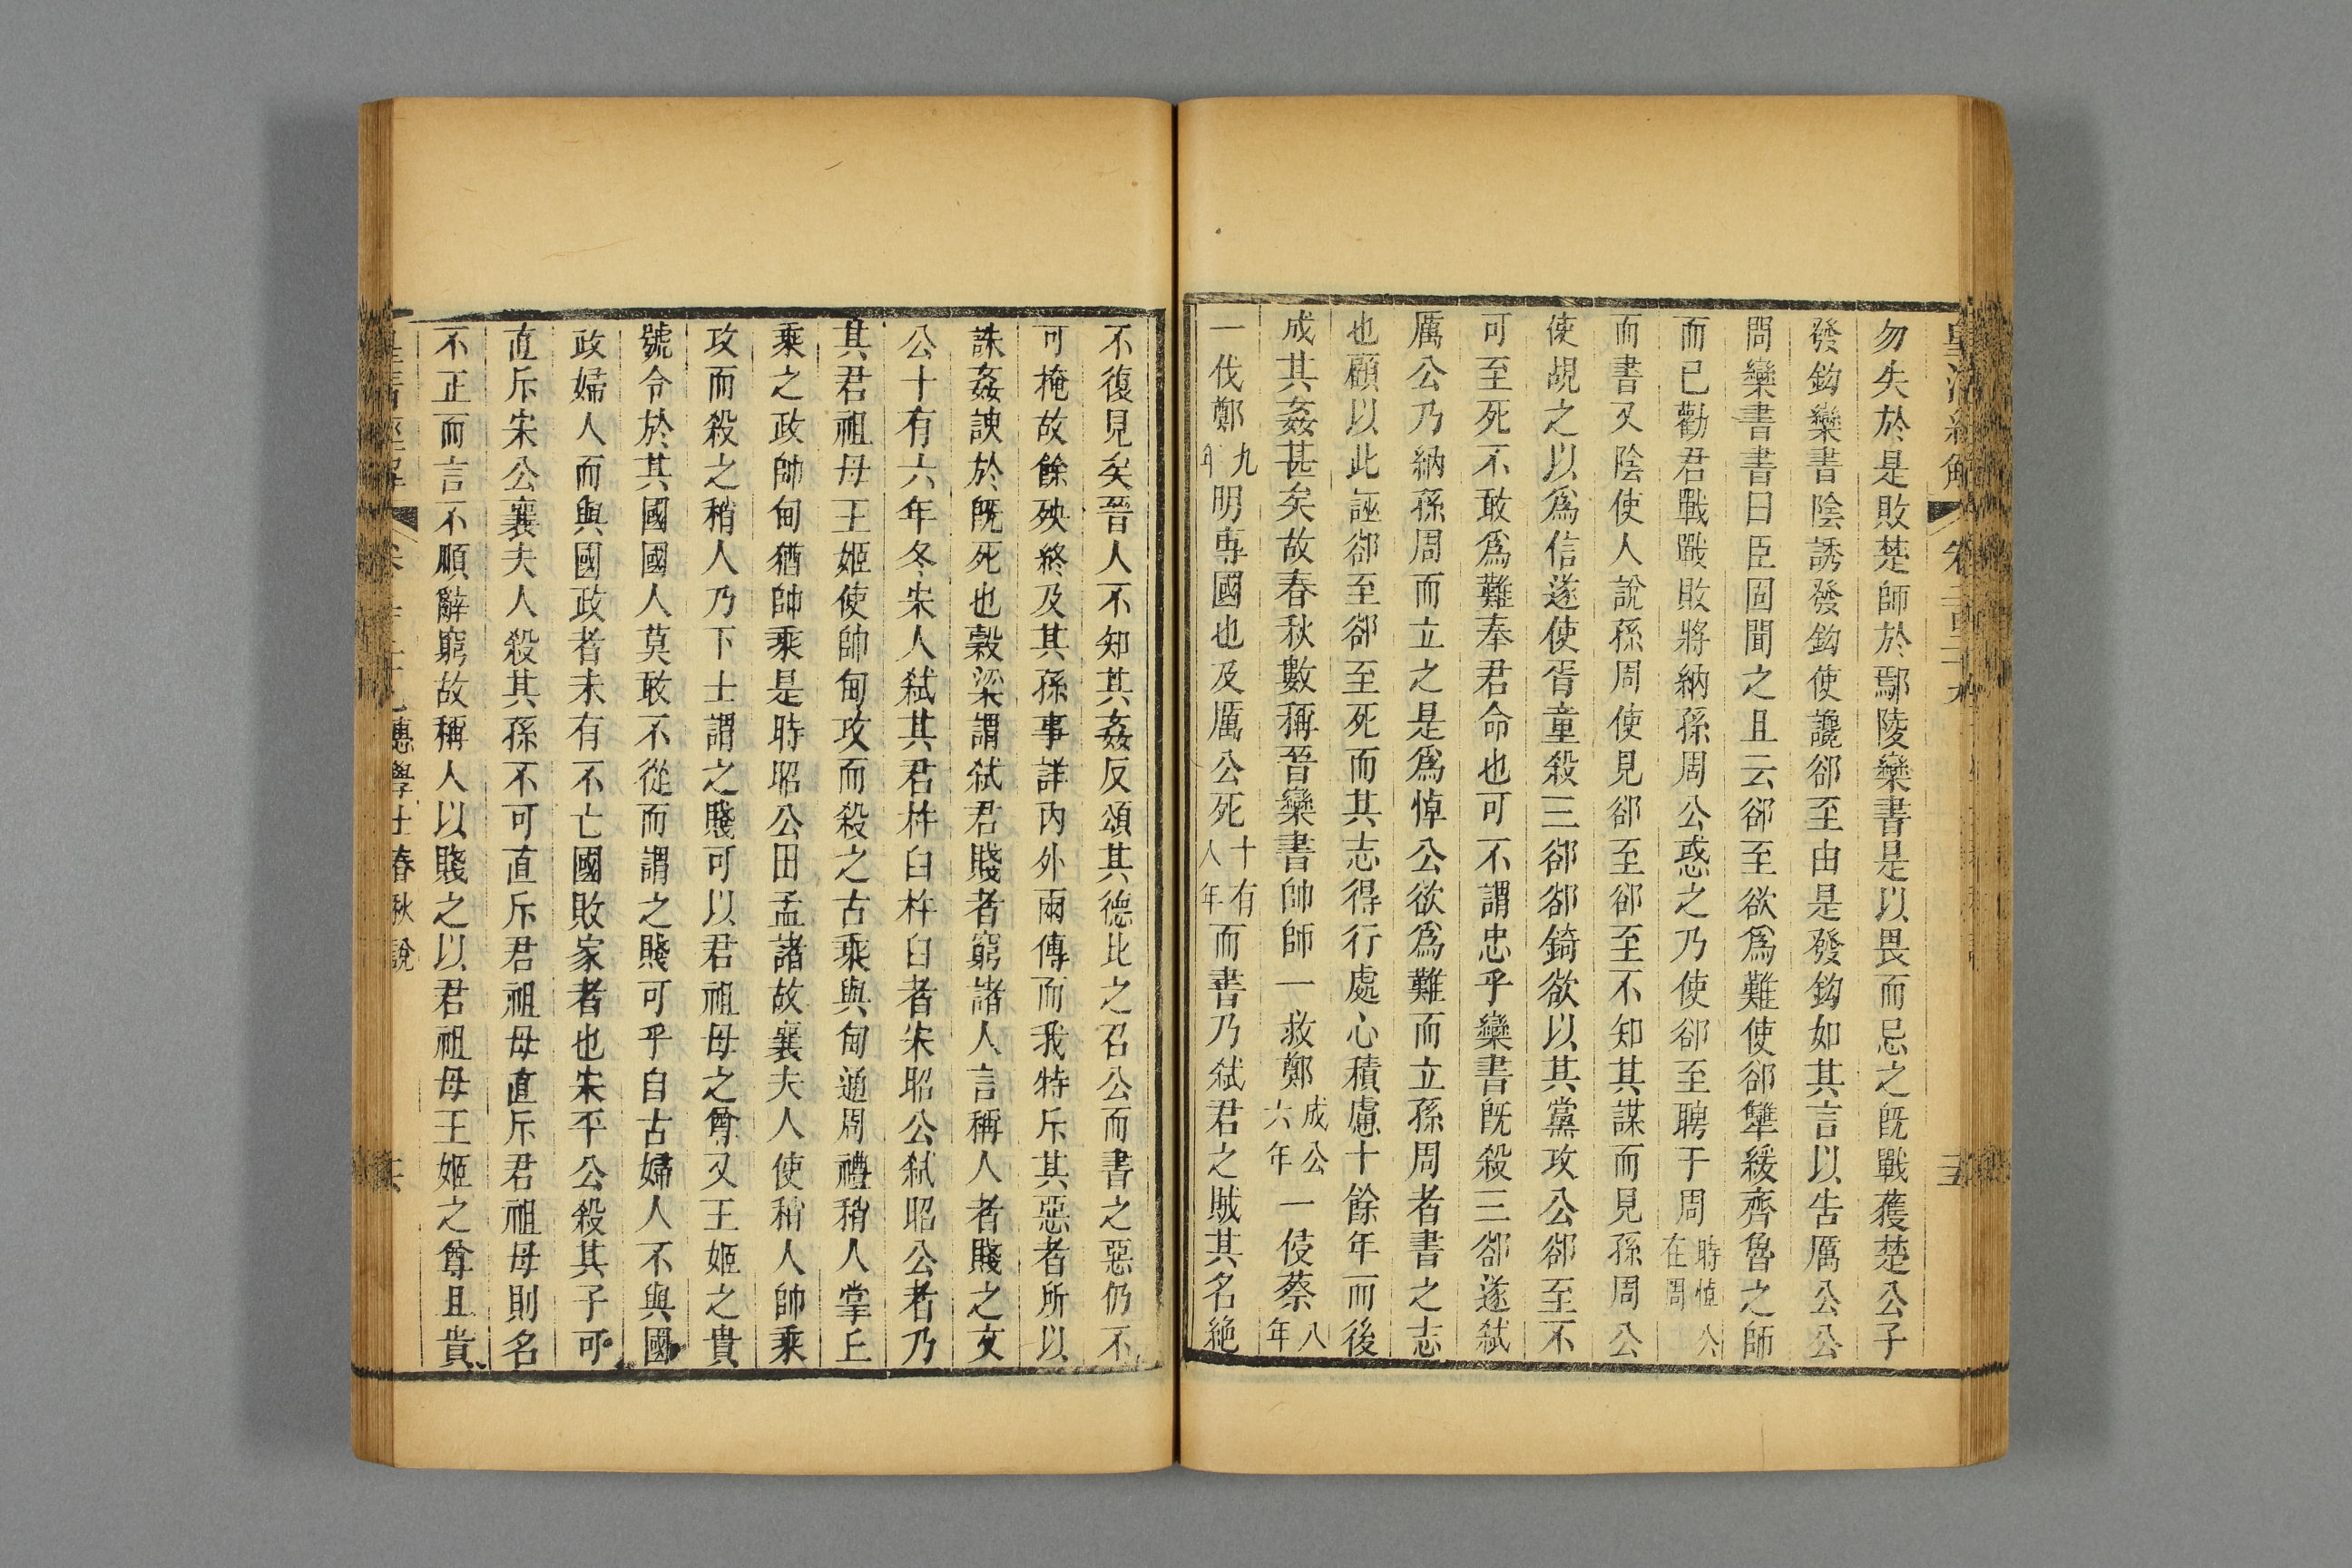 皇清經解 卷二百三十九 五
勿失於是敗楚師於鄢陵欒書是以畏而忌之既戰獲楚公子
發鈎欒書陰誘發鈎使讒郤至由是發鈎如其言以告厲公公
問欒書書曰臣固聞之且云郤至欲為難使郤犫緩齊魯之師
而已勸君戰戰敗將納孫周公惑之乃使郤至聘于周時悼公在周
而書又陰使人說孫周使見郤至郤至不知其謀而見孫周公
使覘之以爲信遂使胥童殺三郤郤錡欲以其黨攻公郤至不
可至死不敢爲難奉君命也可不謂忠乎欒書既殺三郤遂弒
厲公乃納孫周而立之是爲悼公欲爲難而立孫周者書之志
也顧以此誣郤至郤至死而其志得行處心積慮十餘年而後
成其姦甚矣故春秋數稱晉欒書帥師一救鄭成公六年一侵蔡八年
一伐鄭九年明專國也及厲公死十有八年而書乃弒君之賊其名絶
不復見矣晉人不知其姦反頌其德比之召公而書之惡仍不
可掩故餘殃終及其孫事詳內外兩傳而我特斥其惡者所以
誅姦諛於既死也穀梁謂弒君賤者窮諸人言稱人者賤之文
公十有六年冬宋人弒其君杵臼杵臼者宋昭公弒昭公者乃
其君祖母王姬使帥甸攻而殺之古乘與甸通周禮稍人掌丘
乘之政帥甸猶帥乘是時昭公田孟諸故襄夫人使稍人帥乘
攻而殺之稍人乃下士謂之賤可以君祖母之尊又王姬之貴
號令於其國國人莫敢不從而謂之賤可乎自古婦人不與國
政婦人而與國政者未有不亡國敗家者也宋平公殺其子可
直斥宋公襄夫人殺其孫不可直斥君祖母直斥君祖母則名
不正而言不順辭窮故稱人以賤之以君祖母王姬之尊且貴
皇清經解 學士春秋說 六